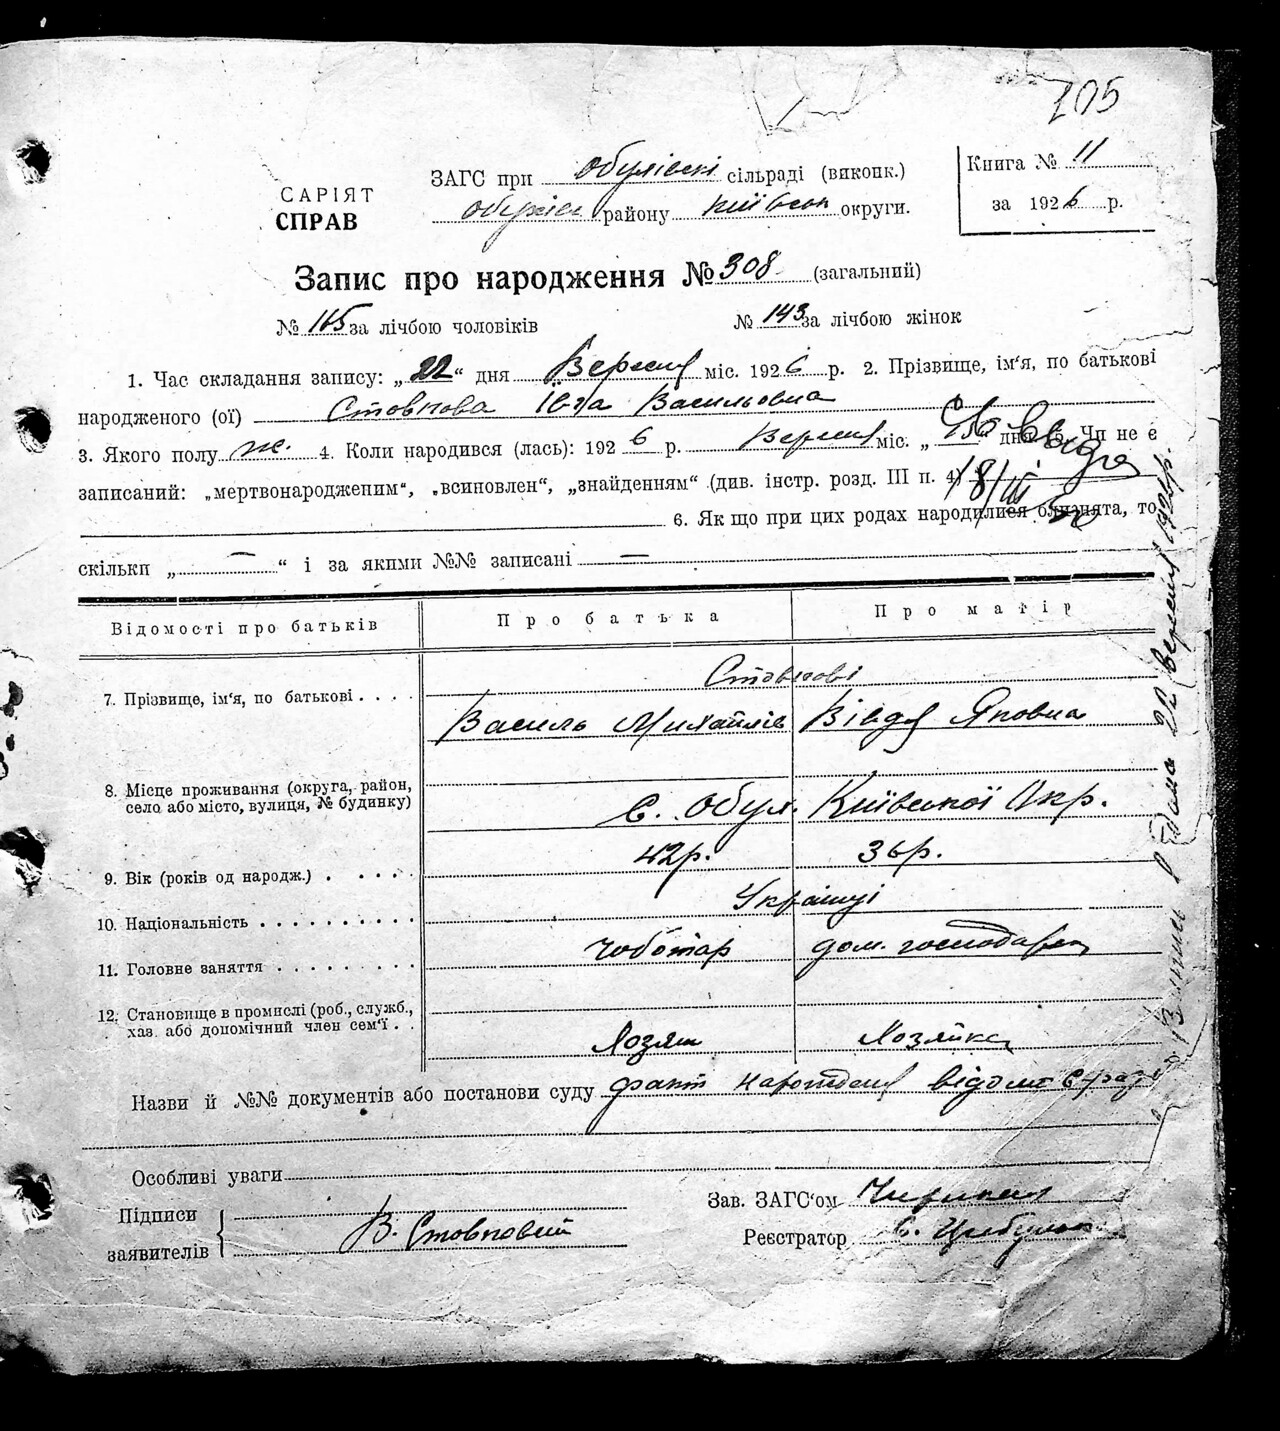 105
ЗАГС при Обухівські сільраді (виконк.)
Книга № 11
САРІЯТ
СПРАВ
Обухів району Київськ округи.
за 1926 р.
Запис про народження № 308 (загальний)
№ 165 за лічбою чоловіків № 143 за лічбою жінок
1. Час складання запису: „22“ дня Вересня міс. 1926 р. 2. Прізвище, ім‘я, по батькові
народженого (ої) Стовпова Ївга Васильовна
3. Якого полу ж. 4. Коли народився (лась): 1926 р. Вересня міс. „ “ дня 5. Чи не є
записаний: „мертвонародженим“, „всиновлен“, „знайденням“ (див. інстр. розд. III п. 4)
18/III
6. Як що при цих родах народилися близнята, то
скільки „—“ і за якими №№ записані —
Відомості про батьків Про батька Про матір
7. Прізвище, ім‘я, по батькові . . . . Стовпові
Василь Михайлів Вівдя Яковна
8. Місце проживання (округа, район,
село або місто, вулиця, № будинку)
с. Обух. Київської Окр.
9. Вік (років од народж.) . . . . . 42р. 36р.
10. Національність . . . . . . . . . . Українці
11. Головне заняття . . . . . . . . . чоботар дом. господарка
12. Становище в промислі (роб., служб.,
хаз. або допомічний член сем‘ї . .
Хозяін Хозяйка
Назви й №№ документів або постанови суду факт народження відомо
Особливі уваги
Зав. ЗАГС‘ом
Підписи
заявителів
В. Стовповий
Реєстратор С. Цибулько
22 вересня 1926р.